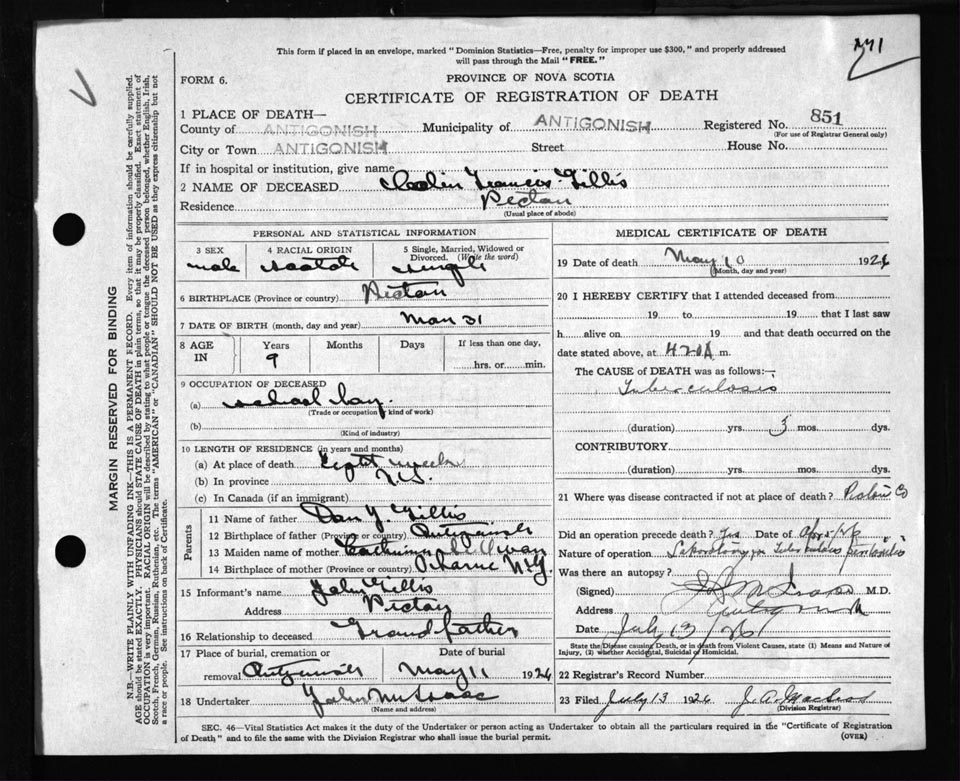 This form if placed in an envelope, marked "Dominion Statistics—Free, penalty for improper use $300," and properly addressed
will pass through the Mail "FREE."
FORM 6.
PROVINCE OF NOVA SCOTIA
CERTIFICATE OF REGISTRATION OF DEATH
1 PLACE OF DEATH—
County of ANTIGONISH Municipality of ANTIGONISH Registered No. 851
(For use of Registrar General only)
City or Town ANTIGONISH Street House No.
If in hospital or institution, give name
2 NAME OF DECEASED Colin Francis Gillis
Residence Pictou
(Usual place of abode)
PERSONAL AND STATISTICAL INFORMATION
3 SEX 4 RACIAL ORIGIN 5 Single, Married, Widowed or Divorced. (Write the word)
male Scotch single
6 BIRTHPLACE (Province or country) Pictou
7 DATE OF BIRTH (month, day and year) Mar 31
8 AGE IN Years Months Days If less than one day,
9 hrs. or min.
9 OCCUPATION OF DECEASED
(a) school boy
(Trade or occupation, kind of work)
(b)
(Kind of industry)
10 LENGTH OF RESIDENCE (in years and months)
(a) At place of death eight weeks
(b) In province N.S.
(c) In Canada (if an immigrant)
Parents
11 Name of father Dan Y. Gillis
12 Birthplace of father (Province or country) Antigonish
13 Maiden name of mother Catherine
14 Birthplace of mother (Province or country)
15 Informant's name John Gillis
Address Pictou
16 Relationship to deceased Grandfather
17 Place of burial, cremation or removal Date of burial
Antigonish May 11 1926
18 Undertaker John McIsaac
(Name and address)
MEDICAL CERTIFICATE OF DEATH
19 Date of death May 10 1926
(Month, day and year)
20 I HEREBY CERTIFY that I attended deceased from
19 to 19 that I last saw
h alive on 19 and that death occurred on
date stated above, at 420A m.
The CAUSE of DEATH was as follows:—
Tuberculosis
(duration) yrs. 3 mos. dys.
CONTRIBUTORY.
(duration) yrs. mos. dys.
21 Where was disease contracted if not at place of death? Pictou Co
Did an operation precede death? Yes Date of Apr 5/26
Nature of operation Laparotomy for Tuberculous peritonitis
Was there an autopsy?
(Signed) M.D.
Address Antigonish
Date July 13/26
State the Disease causing Death, or in death from Violent Causes, state (1) Means and Nature of
Injury, (2) whether Accidental, Suicidal or Homicidal.
22 Record Number
23 Filed July 13 1926 J. A. Macleod
(Division Registrar)
SEC. 46—Vital Statistics Act makes it the duty of the Undertaker or person acting as Undertaker to obtain all the particulars required in the "Certificate of Registration
of Death" and to file the same with the Division Registrar who shall issue the burial permit.
(OVER)
MARGIN RESERVED FOR BINDING
N.B.—WRITE PLAINLY WITH UNFADING INK—THIS IS A PERMANENT RECORD. Every item of information should be carefully supplied.
AGE should be stated EXACTLY. PHYSICIANS should STATE CAUSE OF DEATH in plain terms, so that it may be properly classified. Exact statement of
OCCUPATION is very important. RACIAL ORIGIN will be described by stating to what people or tongue the deceased person belonged, whether English, Irish,
Scotch, French, German, Russian, Ruthenian, etc. The terms "AMERICAN" or "CANADIAN" SHOULD NOT BE USED as they express citizenship but not
a race or people. See instructions on back of Certificate.